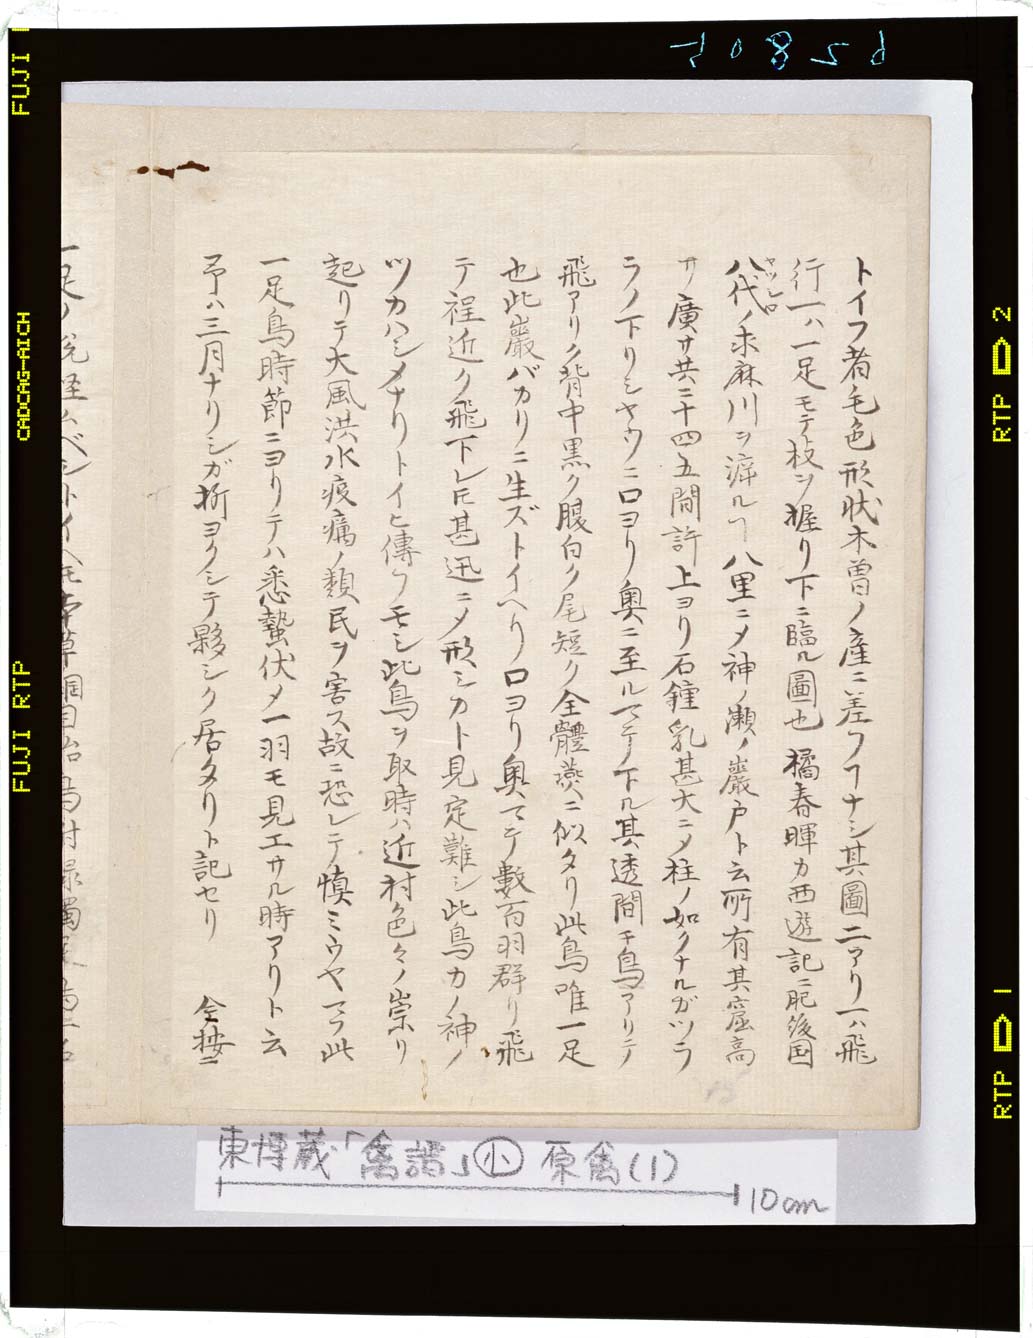 トイフ者毛色形状木曽ノ産ニ差フヿナシ其圖二アリ一ハ飛
行一ハ一足モテ枝ヲ握リ下ニ臨ル圖也 橘春暉カ西遊記ニ肥後国
ヤツシロ
八代ノ求麻川ヲ泝ルヿ八里ニメ神ノ瀬ノ巖戸ト云所有其窟高
サ廣サ共ニ十四五間許上ヨリ石鍾乳甚大ニメ柱ノ如クナルガツラ
ラノ下リシヤウニ口ヨリ奥ニ至ルマテノ下ル其透間チ鳥アリテ
飛アリク背中黒ク腹白ク尾短ク全體燕ニ似タリ此鳥唯一足
也此巖バカリニ生ズトイヘリ口ヨリ奥マテ數百羽群リ飛
テ程近ク飛下レ𪜈甚迅ニメ形シカト見定難シ此鳥カノ神ノ
ツカハシメナリトイヒ傳フモシ此鳥ヲ取時ハ近村色々ノ崇リ
起リテ大風洪水疫癘ノ類民ヲ害ス故ニ恐レテ慎ミウヤマフ此
一足鳥時節ニヨリテハ悉蟄伏メ一羽モ見エサル時アリト云
予ハ三月ナリシガ折ヨクシテ夥シク居タリト記セリ 全按ニ
東博蔵「禽譜」小 原禽(1)
10cm
FUJI
CADCAG-AICH
FUJI RTP
RTP 2
RTP 1